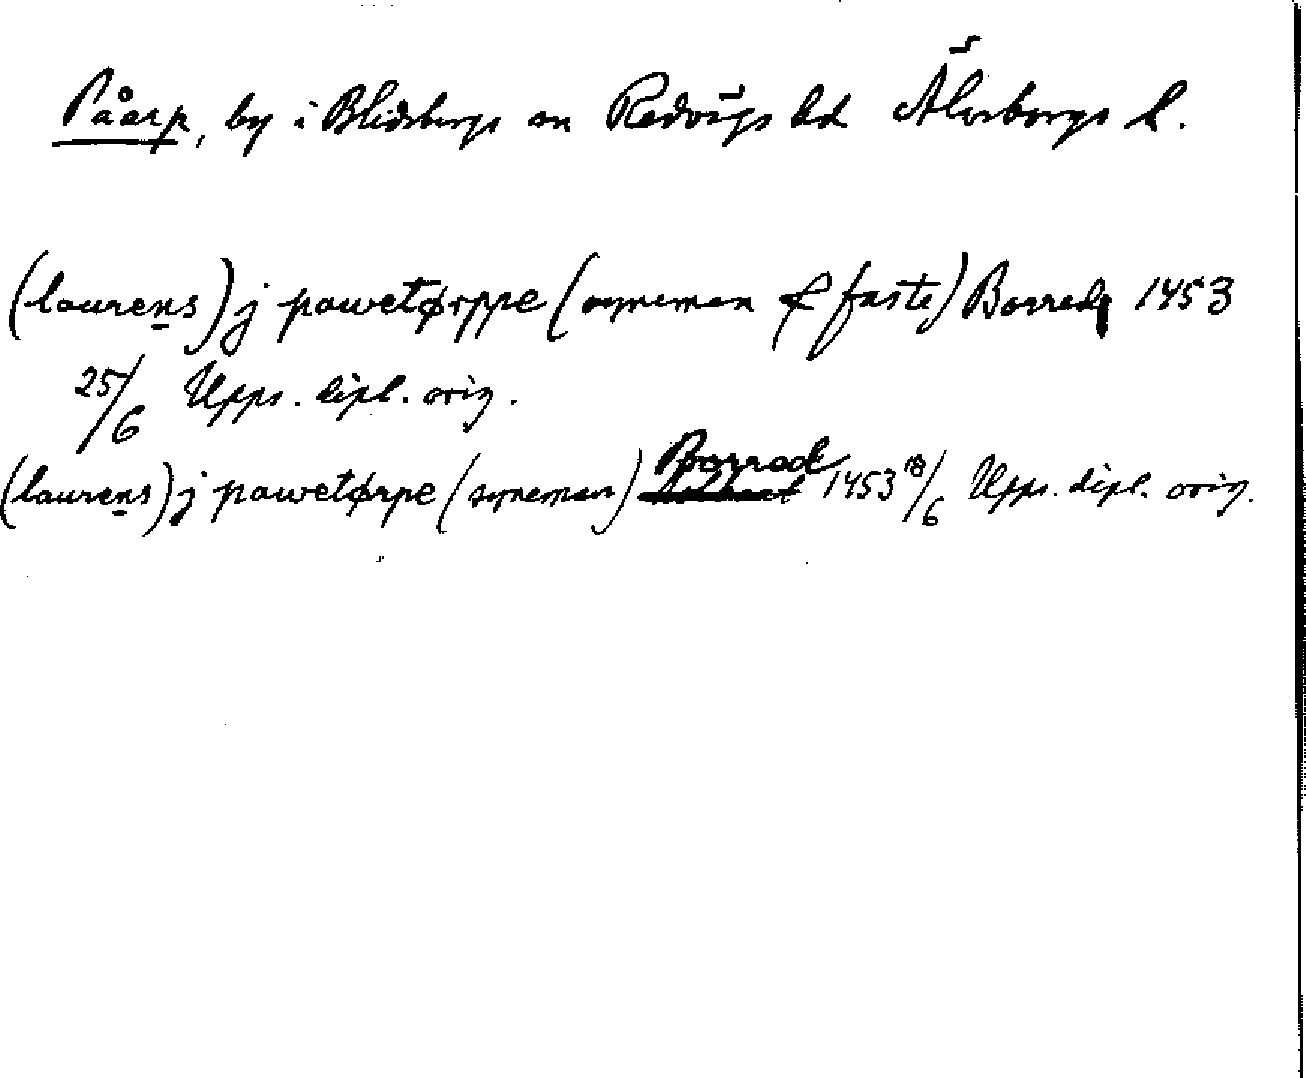 Påarp, by i Blidsbergs sn Redvägs hd Älvsborgs l.
(laurens) j pawetørppe (syneman & faste) Borred 1453
25/6 Upps. dipl. orig.
(laurens) j pawetørpe (syneman) Borred 1453 18/6 Upps. dipl. orig.